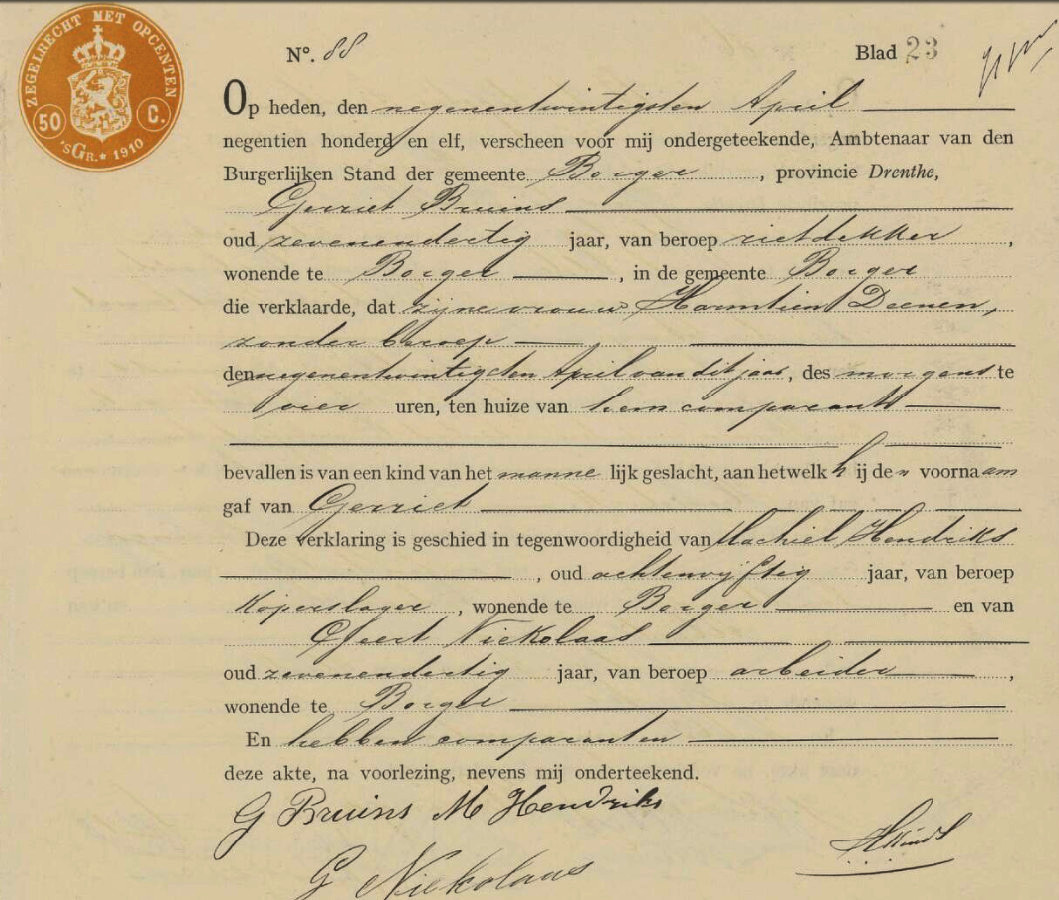 ZEGELRECHT MET OPCENTEN
50 C.
'sGR. * 1910
Nº. 88
Blad 23
Op heden, den negenentwintigsten April
negentien honderd en elf, verscheen voor mij ondergeteekende, Ambtenaar van den
Burgerlijken Stand der gemeente Borger, provincie Drenthe,
Gerriet Bruins
oud zevenendertig jaar, van beroep rietdekker,
wonende te Borger, in de gemeente Borger
die verklaarde, dat zijne vrouw Harmtien Deenen,
zonder beroep
den negenentwintigsten April van dit jaar, des morgens te
vier uren, ten huize van hem comparant
bevallen is van een kind van het mannelijk geslacht, aan hetwelk hij de n voornaam
gaf van Gerriet
Deze verklaring is geschied in tegenwoordigheid van Machiel Hendriks
, oud achtenvijftig jaar, van beroep
koperslager, wonende te Borger en van
Geert Niekolaas
oud zevenendertig jaar, van beroep arbeider,
wonende te Borger
En hebben comparanten
deze akte, na voorlezing, nevens mij onderteekend.
G Bruins M Hendriks
G Niekolaas